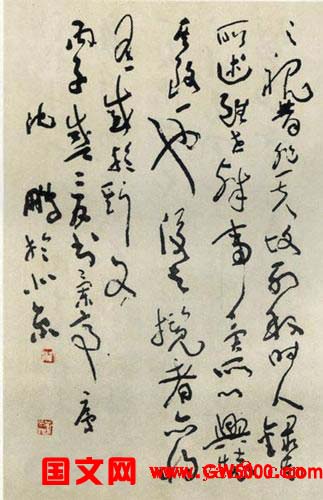 之視昔悲夫故列敘時人錄其
所述雖世殊事異所以興懷
其致一也後之攬者亦將
有感於斯文
丙子 書蘭亭序
沈鵬於北京
国文网
www.GW5000.com